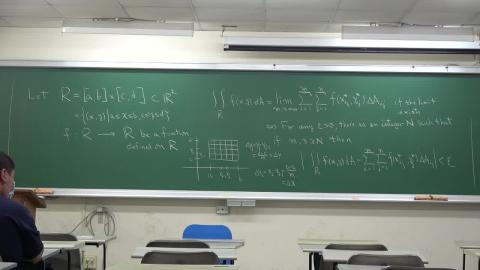 Let R = [a,b] × [c,d] ⊂ ℝ²
= {(x,y) | a≤x≤b, c≤y≤d}
f : R → ℝ be a function
defined on R
∬_R f(x,y) dA = lim_{m,n→∞} Σ_{i=1}^{m} Σ_{j=1}^{n} f(x*_{ij}, y*_{ij}) ΔA_{ij} if the limit exists
⇔ For any ε>0, there is an integer N such that
if m, n ≥ N then
| ∬_R f(x,y) dA − Σ_{i=1}^{m} Σ_{j=1}^{n} f(x*_{ij}, y*_{ij}) ΔA_{ij} | < ε